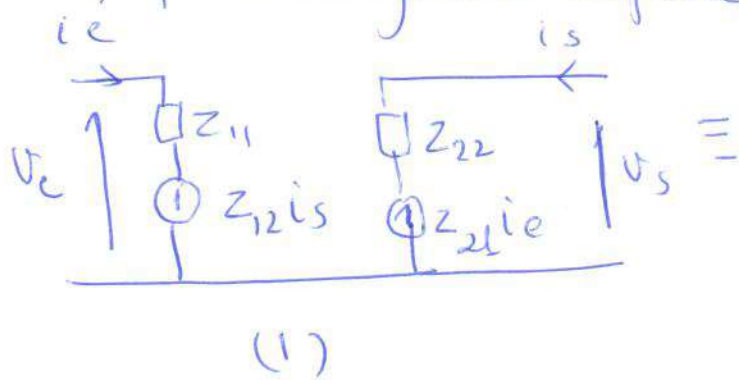 ie is
Z11 Z22 ≡
Ve Z12 is Z21 ie Vs
(1)